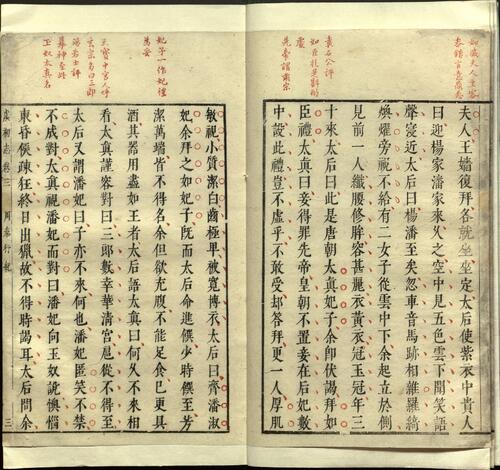 袁石公評
如臣禮
處
先帝謂肅宗
夫人王嬙復拜各就坐坐定太后使紫衣中貴人
曰迎楊家潘家來久之空中見五色雲下聞笑語
聲寖近太后曰楊潘至矣忽車音馬跡相雜羅綺
煥燿旁視不給有二女子從雲中下余起立於側
見前一人纖腰修眸容甚麗衣黃衣冠玉冠年三
十來太后曰此是唐朝太真妃子余即伏謁拜如
臣禮太真曰妾得罪先帝皇朝不置妾在后妃數
中設此禮豈不虛乎不敢受却答拜更一人厚肌
妃子一作妃禮
萬安
天寶中宮人呼
玄宗多曰三郎
湯若士評
玉奴太真名
敏視小質潔白齒極卑被寬博衣太后曰齊潘淑
妃余拜之如妃子既而太后命進饌少時饌至芳
潔萬端皆不得名余但欲充腹不能足食已更具
酒其器用盡如王者太后語太真曰何久不來相
看太真謹容對曰三郎數幸華清宮扈從不得至
太后又謂潘妃曰子亦不來何也潘妃匿笑不禁
不成對太真視潘妃而對曰潘妃向玉奴說懊惱
東昏侯疎狂終日出獵故不得時謁耳太后問余
虞初志卷三 周秦行紀 三